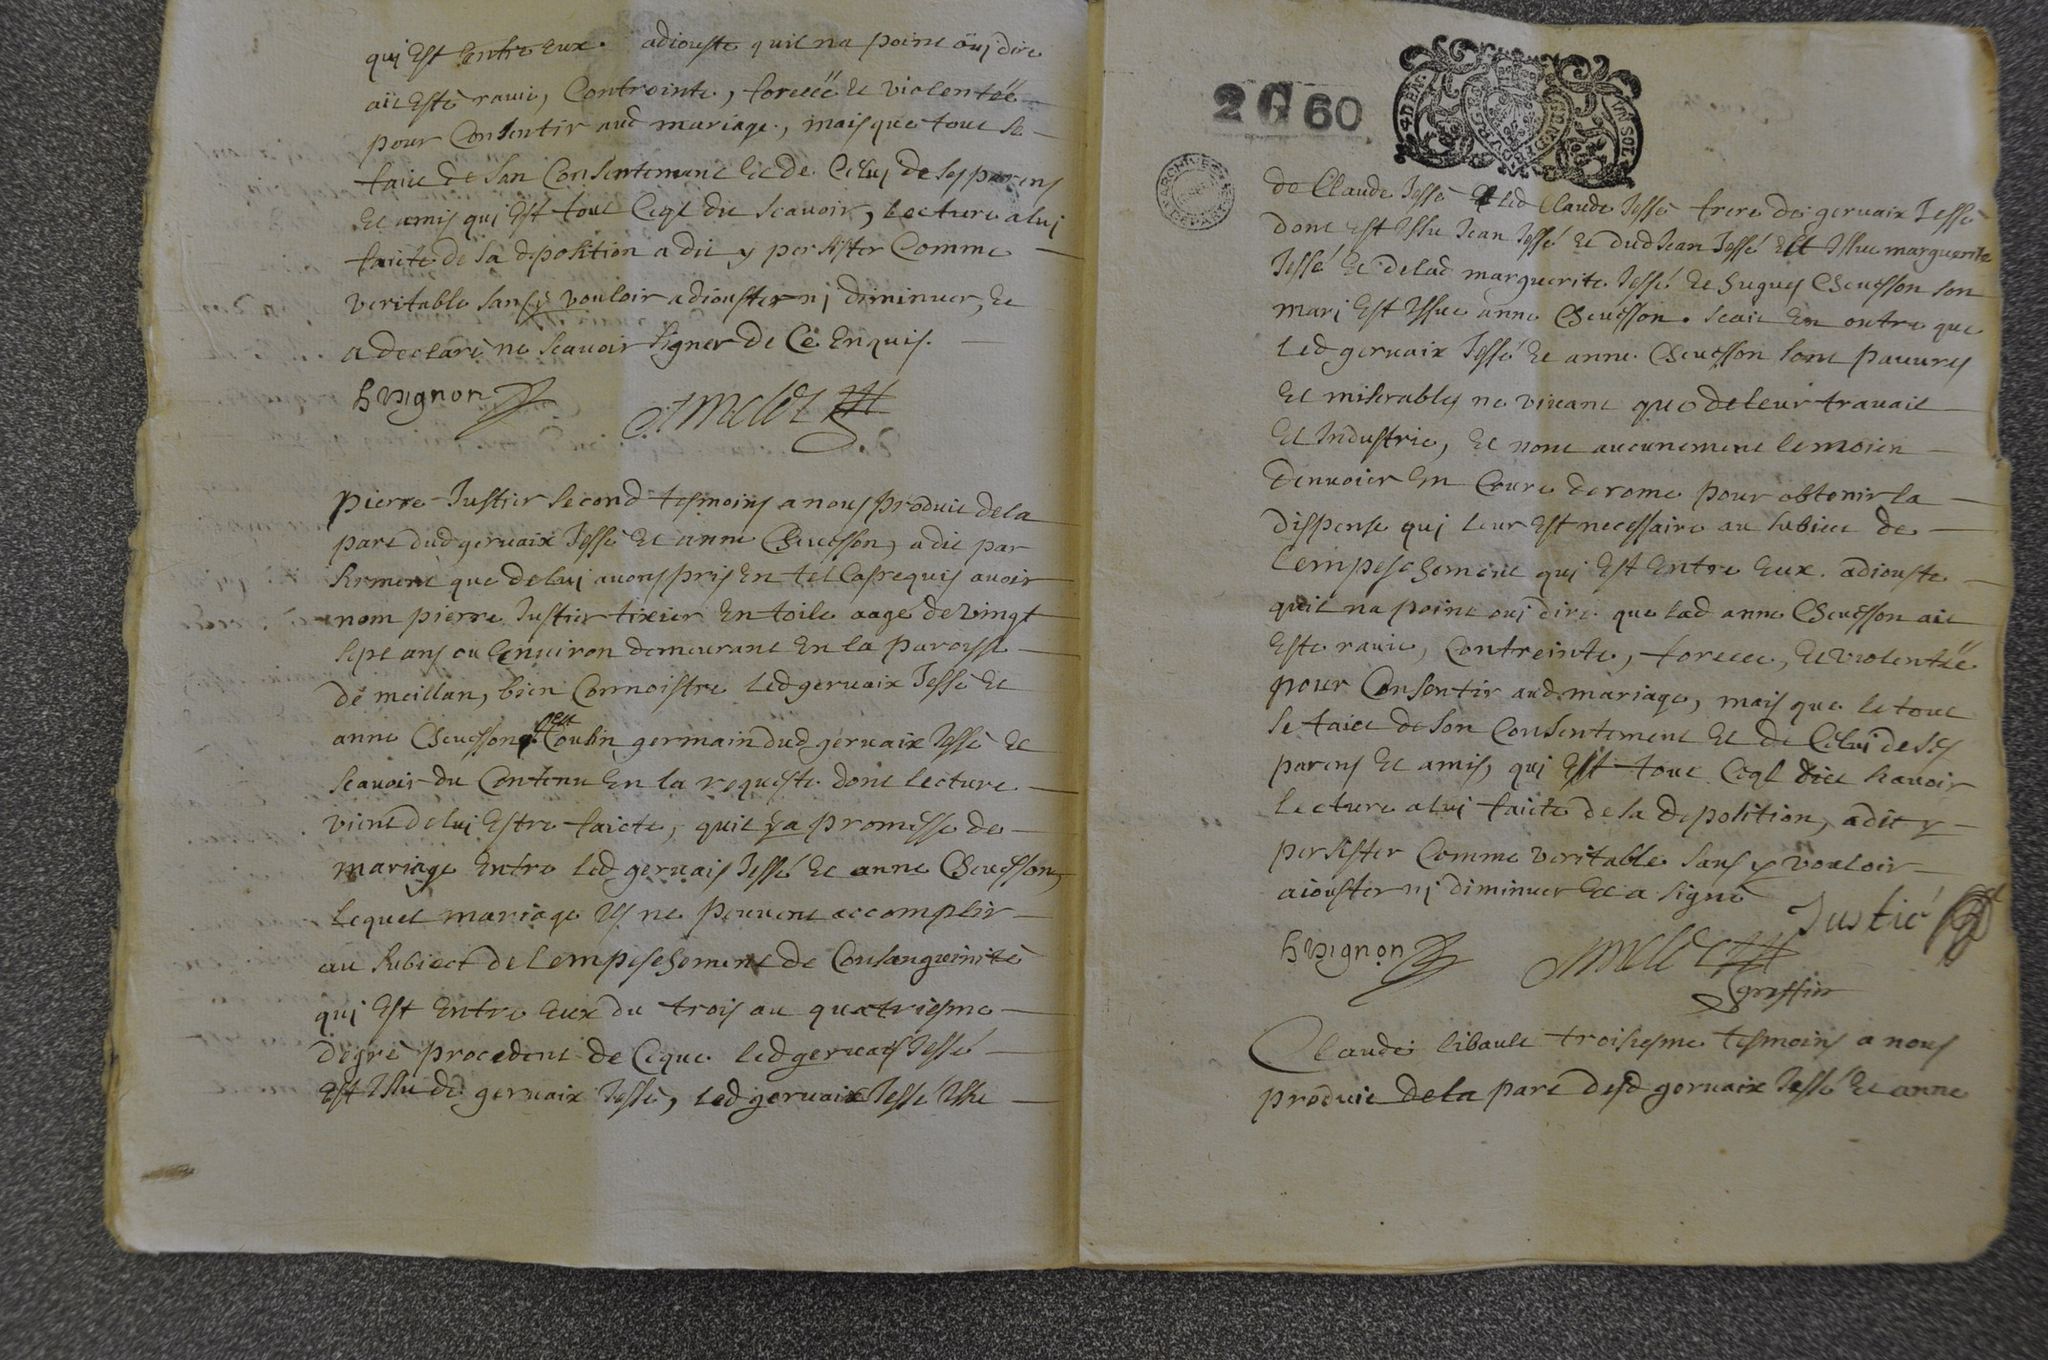 qui Est Entre eux. adiouste quil na point ouj dire
ait Esté rauie, Controinte, forcéé et violentéé
pour Consentir aud mariage, mais que tout se
faict de son Consentement et de Celuj de ses parens
Et amis qui Est tout Ceql dit scauoir, Lecture a luj
faicte de sa deposition a dit y persister Comme
veritable sans y vouloir adiouster nj diminuer, et
a declaré ne scauoir signer de Ce Enquis.
h vignon
pierre Justier second tesmoins a nous produit de la
part dud geruaix Jessé et anne Cheusson, a dit par
serment que de luj auons pris En tel Cas requis auoir
nom pierre Justier tixier En toile aagé de vingt
sept ans ou Enuiron demeurant En la paroisse
de meillan, bien Connoistre led geruaix Jessé et
anne Cheusson Est Cousin germain dud geruaix Jessé et
scauoir du Contenu En la requeste dont lecture
vient de luj Estre faicte, quil y a promesse de
mariage Entre led geruais Jessé et anne Cheusson,
Lequel mariage Ils ne peuuent accomplir
au subiect de Lempeschement de Consanguinité
qui Est Entre Eux du trois au quatriesme
degré procedent de Ceque led geruais Jessé
Est Issu de geruaix Jessé, led geruaix Jessé Issu
2 G 60
de Claude Jessé et led Claude Jessé frere de geruaix Jessé
dont Est Issu Jean Jessé et dud Jean Jessé Est Issue marguerite
Jessé et de lad marguerite Jessé et hugues Cheusson son
mari Est Issue anne Cheusson. scait En outre que
Led geruaix Jessé et anne Cheusson sont pauures
et miserables ne viuant que de leur trauail
Et Industrie, et nont aucunement le moien
Denuoier En Cour de rome pour obtenir la
dispense qui leur Est necessaire au subiect de
Lempeschement qui Est Entre Eux. adiouste
quil na point ouj dire que lad anne Cheusson ait
Esté rauie, Contreinte, forcee, et violentéé
pour Consentir aud mariage, mais que le tout
se faict de son Consentement et de Celui de ses
parens et amis, qui Est tout Ceql dict scauoir
Lecture a luj faicte de sa deposition, a dit y
persister Comme veritable sans y vouloir
aiouster nj diminuer et a signé
Justié
h vignon
greffier
Claude libault troisiesme tesmoins a nous
produit de la part desd geruaix Jessé et anne